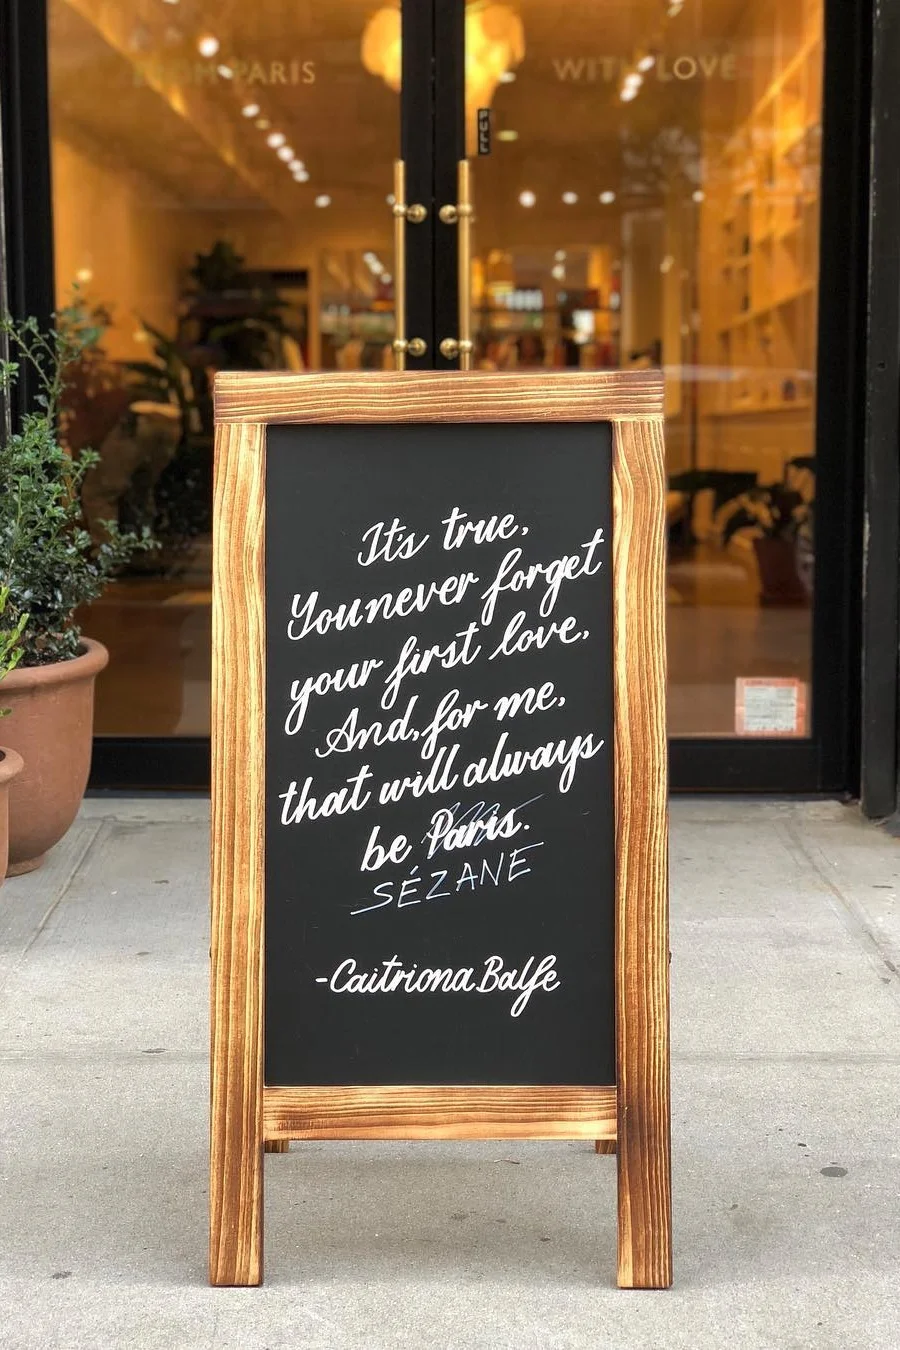 FROM PARIS
WITH LOVE
PULL
It's true,
You never forget
your first love.
And, for me,
that will always
be Paris.
SÉZANE
-Caitriona Balfe